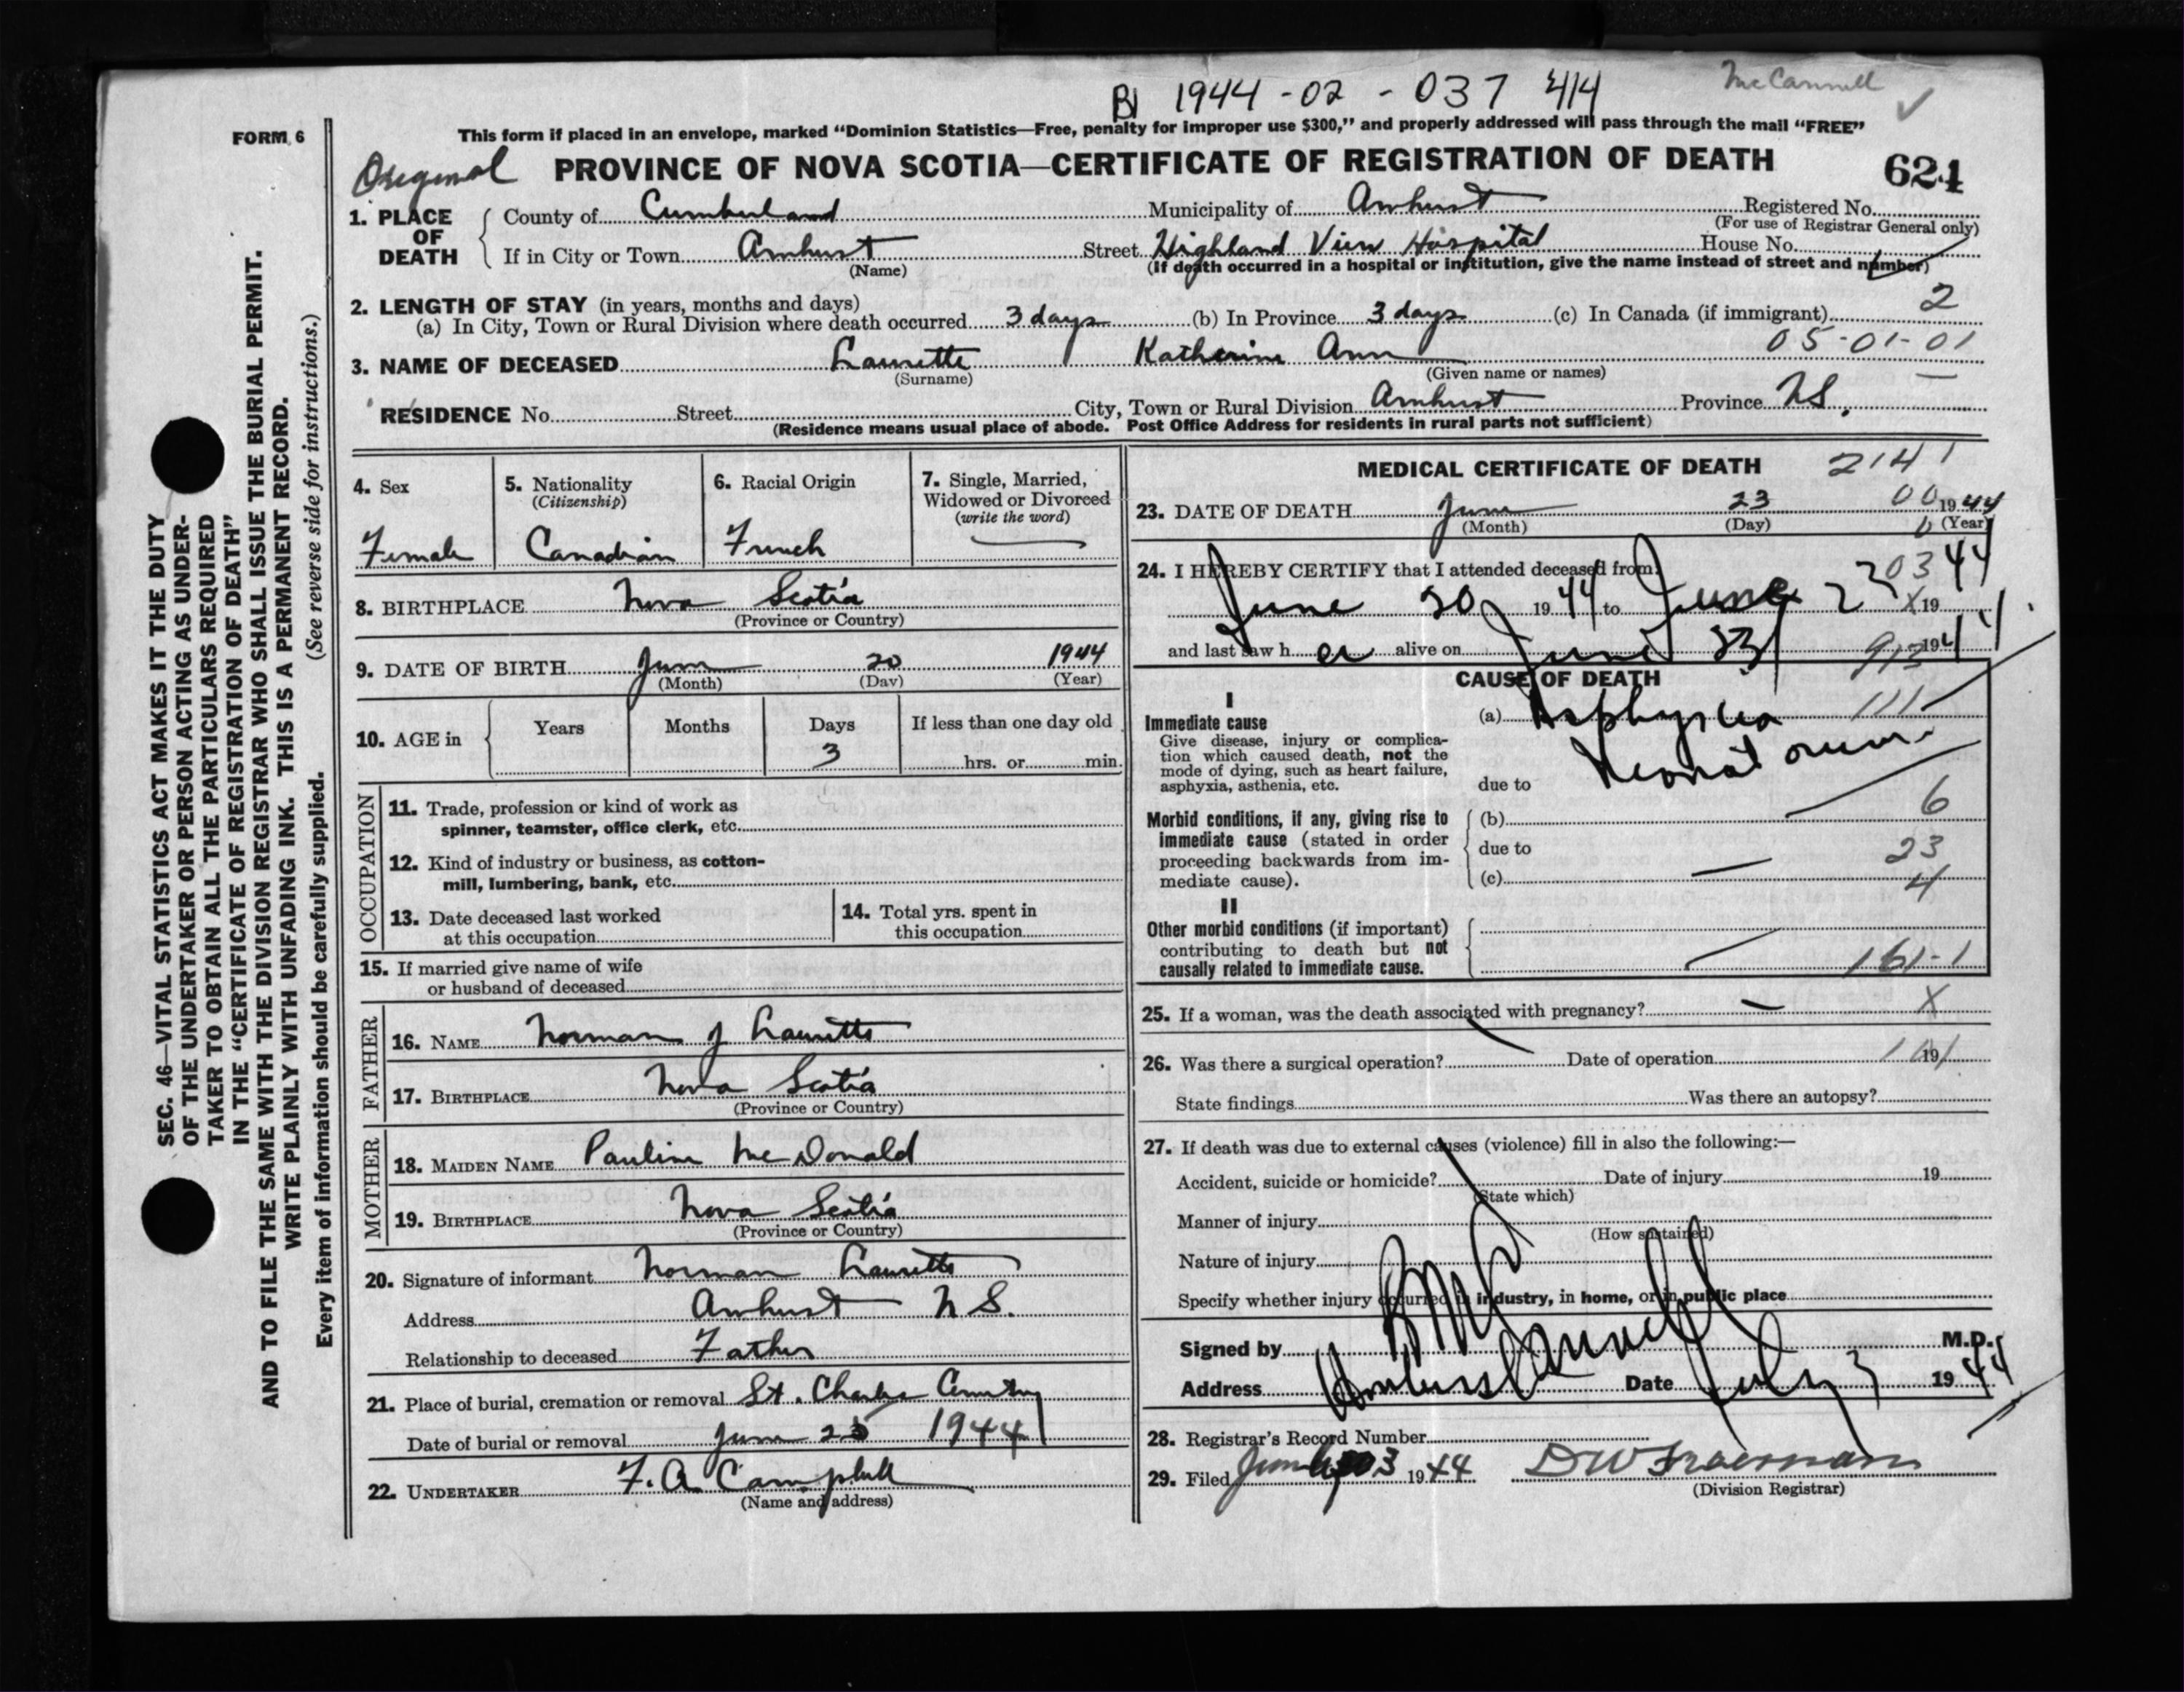 B 1944-02-037 414
McCannell
FORM 6
This form if placed in an envelope, marked “Dominion Statistics—Free, penalty for improper use $300,” and properly addressed will pass through the mail “FREE”
Original PROVINCE OF NOVA SCOTIA—CERTIFICATE OF REGISTRATION OF DEATH 624
1. PLACE OF DEATH County of Cumberland Municipality of Amherst Registered No.
(For use of Registrar General only)
If in City or Town Amherst Street Highland View Hospital House No.
(Name) (If death occurred in a hospital or institution, give the name instead of street and number)
2. LENGTH OF STAY (in years, months and days) 2
(a) In City, Town or Rural Division where death occurred 3 days (b) In Province 3 days (c) In Canada (if immigrant)
05-01-01
3. NAME OF DECEASED Laurette Katherine Ann
(Surname) (Given name or names)
RESIDENCE No. Street City, Town or Rural Division Amherst Province N.S.
(Residence means usual place of abode. Post Office Address for residents in rural parts not sufficient)
4. Sex 5. Nationality (Citizenship) 6. Racial Origin 7. Single, Married, Widowed or Divorced (write the word)
Female Canadian French —
8. BIRTHPLACE Nova Scotia
(Province or Country)
9. DATE OF BIRTH June 20 1944
(Month) (Day) (Year)
10. AGE in Years Months Days If less than one day old
3 hrs. or min.
OCCUPATION
11. Trade, profession or kind of work as
spinner, teamster, office clerk, etc.
12. Kind of industry or business, as cotton-
mill, lumbering, bank, etc.
13. Date deceased last worked
at this occupation
14. Total yrs. spent in
this occupation
15. If married give name of wife
or husband of deceased
FATHER
16. NAME Norman J Laurette
17. BIRTHPLACE Nova Scotia
(Province or Country)
MOTHER
18. MAIDEN NAME Pauline McDonald
19. BIRTHPLACE Nova Scotia
(Province or Country)
20. Signature of informant Norman Laurette
Address Amherst N S.
Relationship to deceased Father
21. Place of burial, cremation or removal St. Charles Cemetery
Date of burial or removal June 25 1944
22. UNDERTAKER F. A. Campbell
(Name and address)
MEDICAL CERTIFICATE OF DEATH 2141
23. DATE OF DEATH June 23 00 1944
(Month) (Day) (Year)
24. I HEREBY CERTIFY that I attended deceased from 03
June 20 1944 to June 23 1944
and last saw her alive on June 23 1944
CAUSE OF DEATH
I
Immediate cause
Give disease, injury or complica-
tion which caused death, not the
mode of dying, such as heart failure,
asphyxia, asthenia, etc.
(a) Asphyxia 111
Neonatorum
due to
Morbid conditions, if any, giving rise to
immediate cause (stated in order
proceeding backwards from im-
mediate cause).
(b) 6
due to 23
(c) 4
II
Other morbid conditions (if important)
contributing to death but not
causally related to immediate cause.
161-1
25. If a woman, was the death associated with pregnancy? — X
26. Was there a surgical operation? Date of operation 19
State findings Was there an autopsy?
27. If death was due to external causes (violence) fill in also the following:—
Accident, suicide or homicide? Date of injury 19
(State which)
Manner of injury
(How sustained)
Nature of injury
Specify whether injury occurred in industry, in home, or in public place
Signed by McCannell M.D.
Address Amherst Date July 3 1944
28. Registrar's Record Number
29. Filed 1944
(Division Registrar)
SEC. 46—VITAL STATISTICS ACT MAKES IT THE DUTY
OF THE UNDERTAKER OR PERSON ACTING AS UNDER-
TAKER TO OBTAIN ALL THE PARTICULARS REQUIRED
IN THE “CERTIFICATE OF REGISTRATION OF DEATH”
AND TO FILE THE SAME WITH THE DIVISION REGISTRAR WHO SHALL ISSUE THE BURIAL PERMIT.
WRITE PLAINLY WITH UNFADING INK. THIS IS A PERMANENT RECORD.
Every item of information should be carefully supplied. (See reverse side for instructions.)